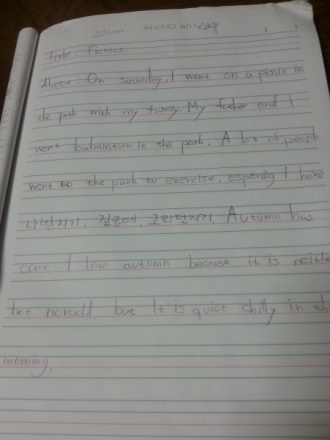 Title : Picnics
Above : On saunday, I went on a picnic in
de park with my family. My father and I
went badmintom in the park. A lot of people
went to the park to exercise, especily I have
Autumn has
come I love autumn because it is neithe
hot norcold but It is quiet chilly in th
morning.